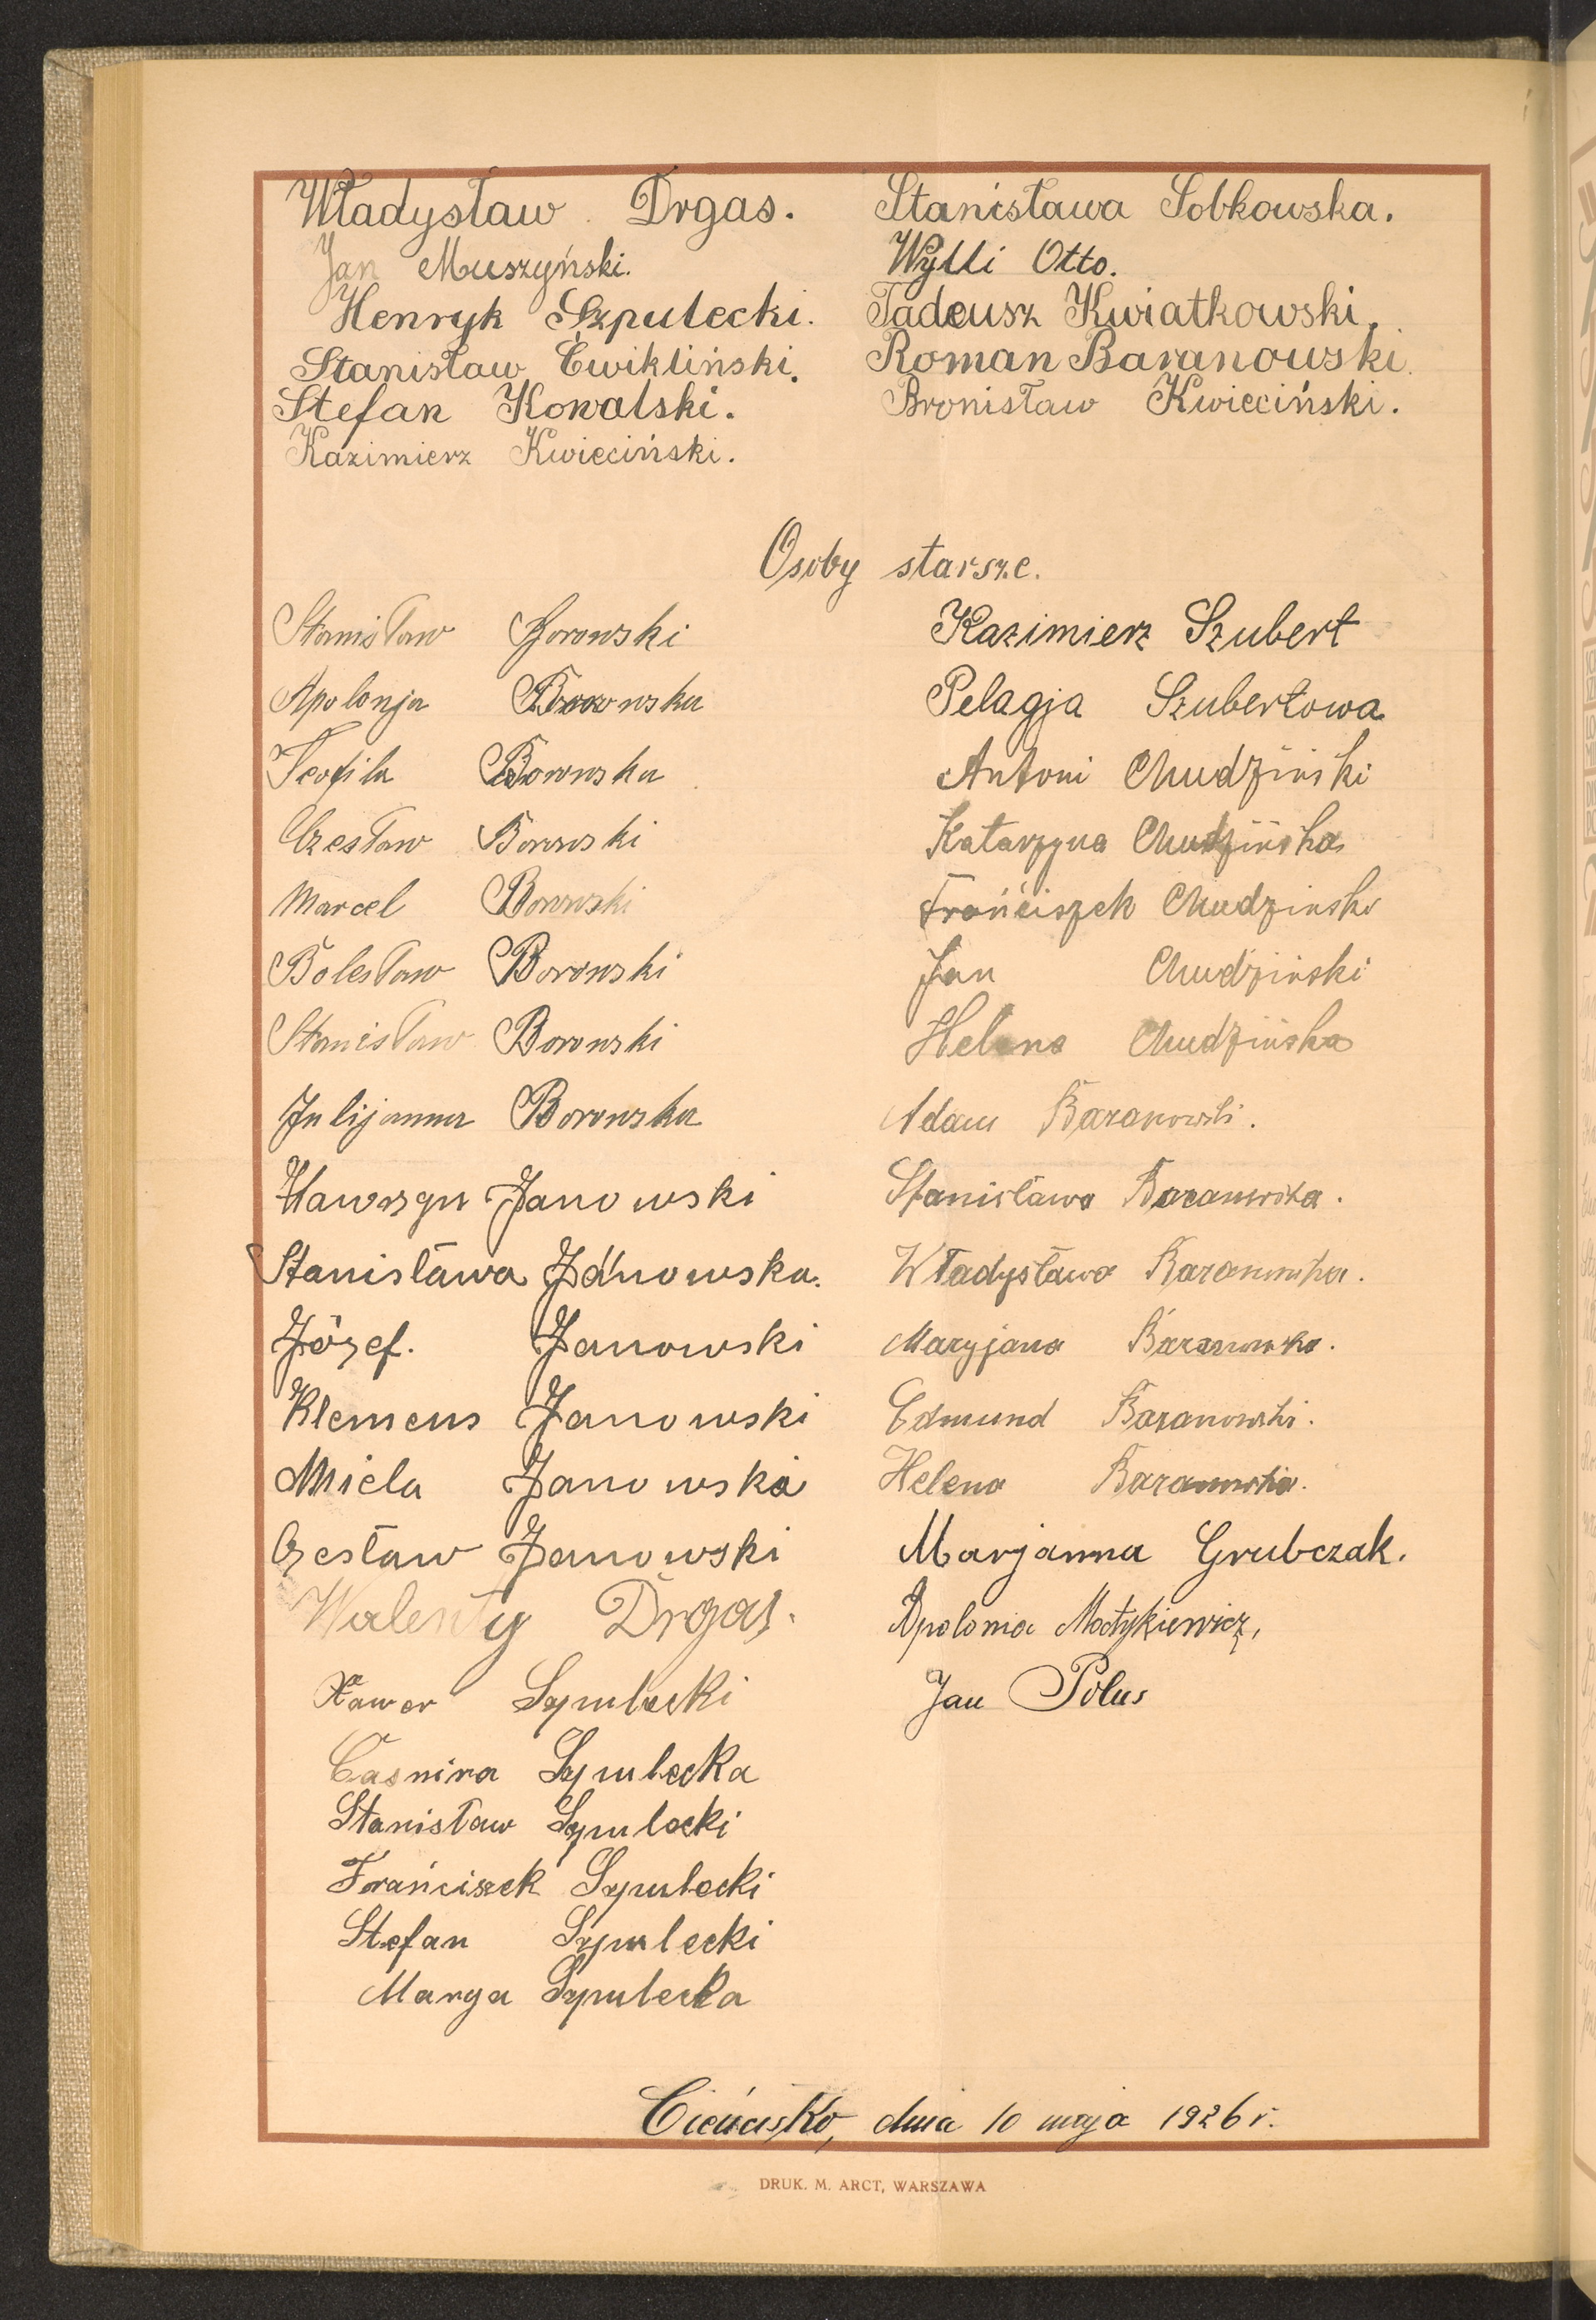 Władysław Drgas.
Jan Muszyński.
Henryk Szpulecki.
Stanisław Ćwikliński.
Stefan Kowalski.
Kazimierz Kwieciński.
Stanisława Sobkowska.
Wylli Otto.
Tadeusz Kwiatkowski.
Roman Baranowski.
Bronisław Kwieciński.
Osoby starsze.
Stanisław Borowski
Apolonja Borowska
Teofila Borowska
Czesław Borowski
Marcel Borowski
Bolesław Borowski
Stanisław Borowski
Julijanna Borowska
Wawrzyn Janowski
Stanisława Janowska.
Józef. Janowski
Klemens Janowski
Miela Janowska
Czesław Janowski
Walenty Drgas.
Xawer Szpulecki
Szpulecka
Stanisław Szpulecki
Frańciszek Szpulecki
Stefan Szpulecki
Marya Szpulecka
Kazimierz Szubert
Pelagja Szubertowa
Antoni Chudziński
Katarzyna Chudzińska
Frańciszek Chudzinski
Jan Chudziński
Helena Chudzińska
Adam Baranowski.
Stanisława Baranowska.
Władysława Baranowska.
Maryjana Baranowska.
Edmund Baranowski.
Helena Baranowska.
Marjanna Grubczak.
Apolonia Matykiewicz,
Jan Polus
Cieńcisko, dnia 10 maja 1926 r.
DRUK. M. ARCT, WARSZAWA